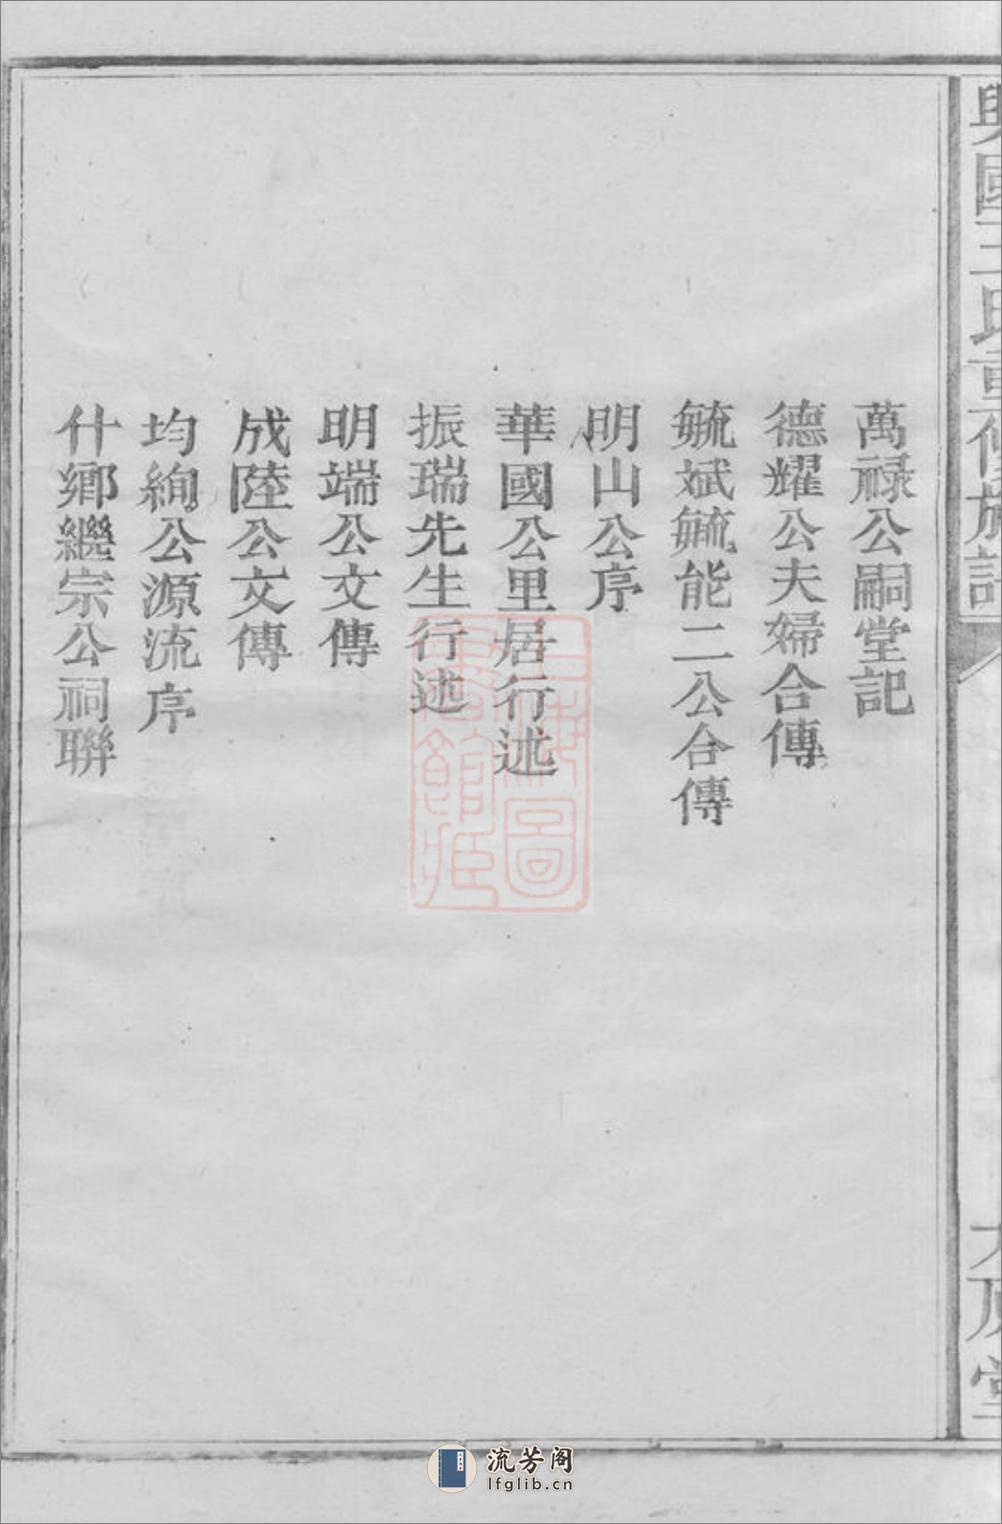 興國王氏重修族譜
萬祿公嗣堂記
德耀公夫婦合傳
毓斌毓能二公合傳
明山公序
華國公里居行述
振瑞先生行述
明端公文傳
成陸公文傳
均絢公源流序
什鄉繼宗公祠聯
流芳阁
lfglib.cn